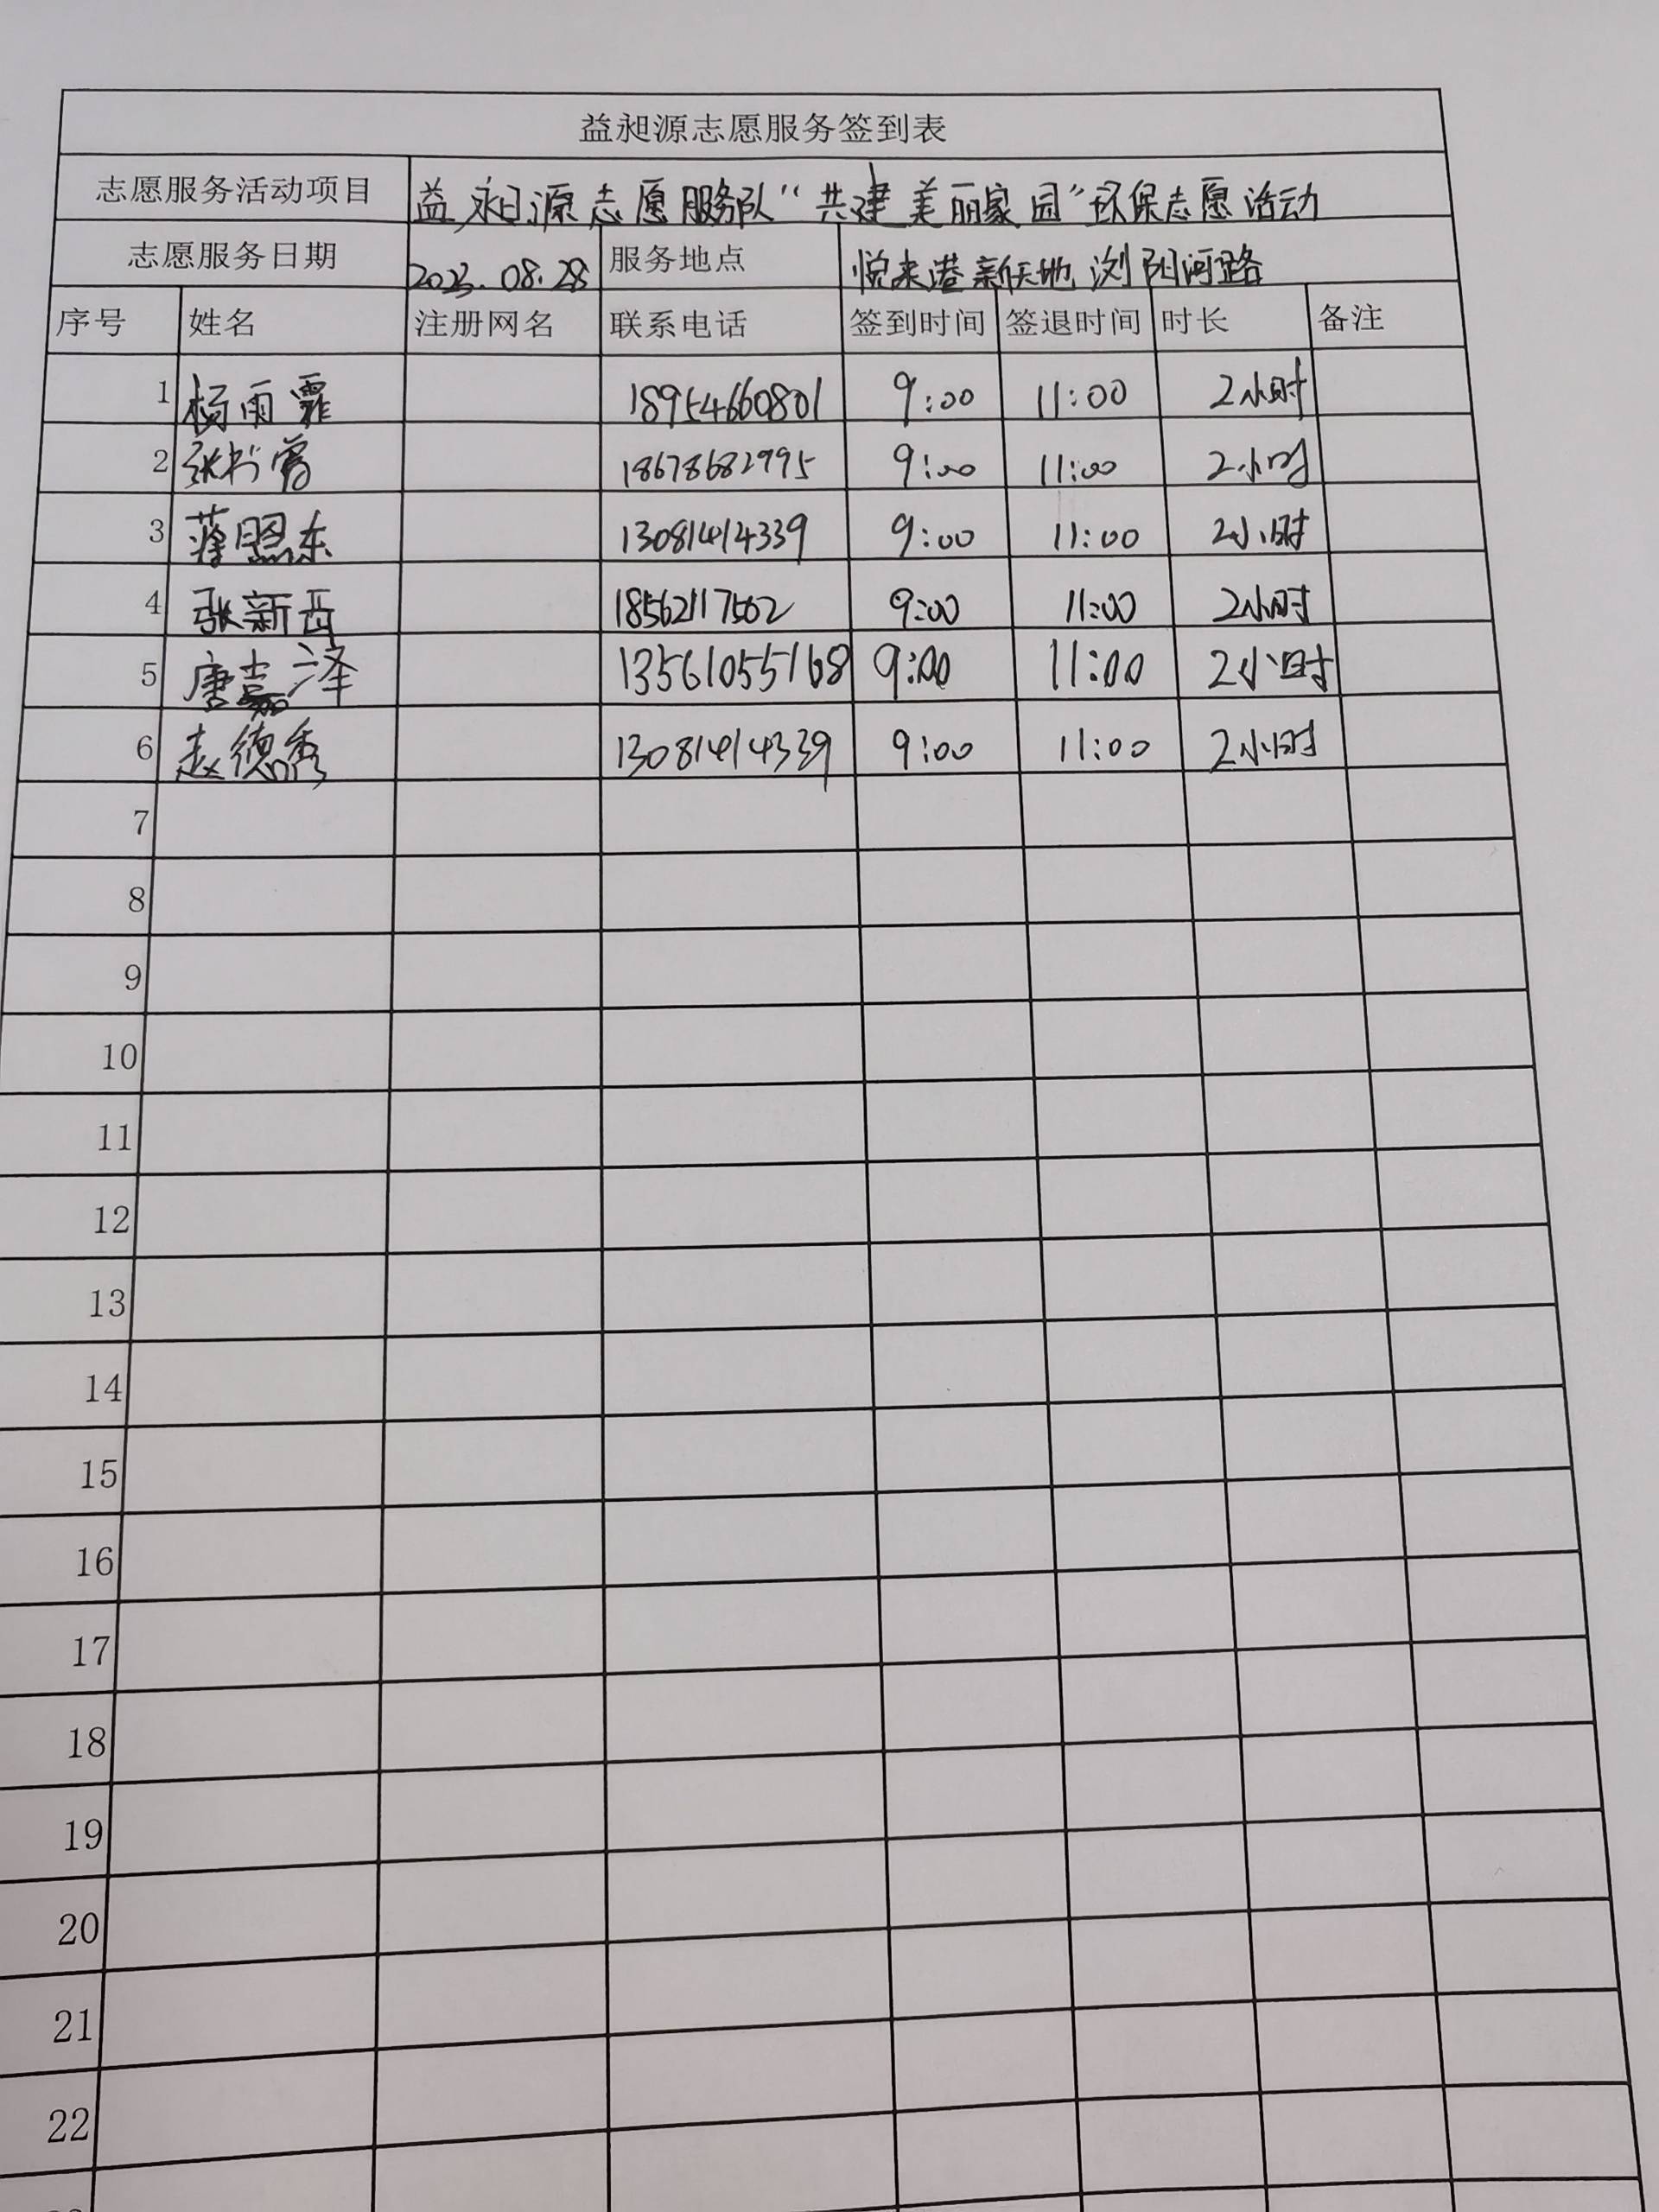 益昶源志愿服务签到表
志愿服务活动项目 益昶源志愿服务队“共建美丽家园”环保志愿活动
志愿服务日期 2023.08.28 服务地点 悦来港新天地浏阳河路
序号 姓名 注册网名 联系电话 签到时间 签退时间 时长 备注
1 杨雨霏 18954660801 9:00 11:00 2小时
2 18678682995 9:00 11:00 2小时
3 蒋照东 13081414339 9:00 11:00 2小时
4 张新西 18562117502 9:00 11:00 2小时
5 唐嘉泽 13561055168 9:00 11:00 2小时
6 赵德秀 13081414339 9:00 11:00 2小时
7
8
9
10
11
12
13
14
15
16
17
18
19
20
21
22